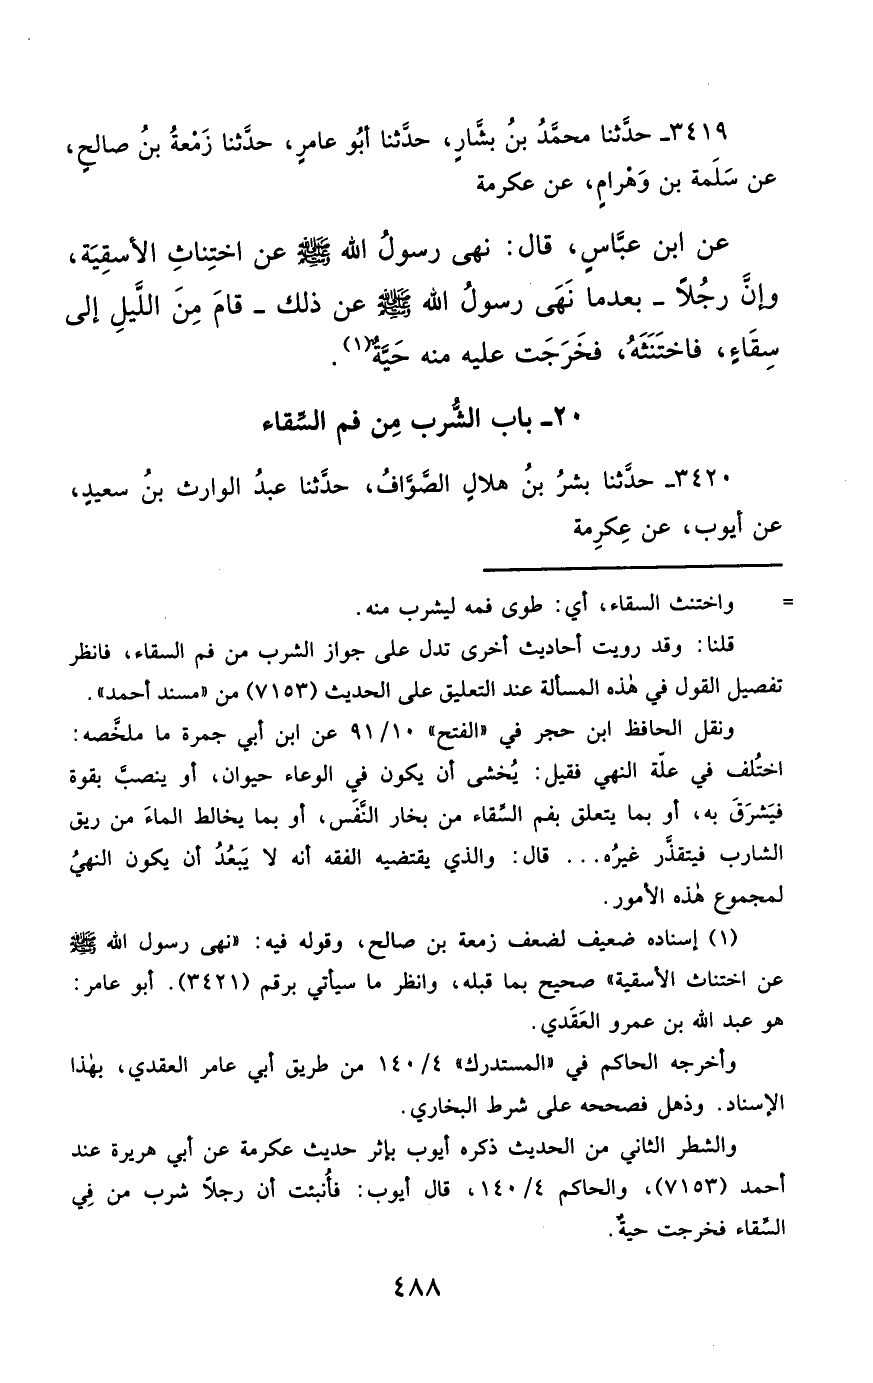 ٣٤١٩ـ حدَّثنا محمَّدُ بنُ بشَّارٍ، حدَّثنا أبُو عامرٍ، حدَّثنا زَمْعةُ بنُ صالحٍ،
عن سَلَمة بن وَهْرامٍ، عن عكرمة
عن ابن عبَّاسٍ، قال: نهى رسولُ الله ﷺ عن اختِناثِ الأسقِيَة،
وإنَّ رجُلاً ـ بعدما نَهَى رسولُ الله ﷺ عن ذلك ـ قامَ مِنَ اللَّيلِ إلى
سِقَاءٍ، فاختَنَثَهُ، فخَرَجَت عليه منه حَيَّةٌ(١).
٢٠ـ باب الشُّرب مِن فم السِّقاء
٣٤٢٠ـ حدَّثنا بشرُ بنُ هلالٍ الصَّوَّافُ، حدَّثنا عبدُ الوارث بنُ سعيدٍ،
عن أيوب، عن عِكرِمة
= واختنث السقاء، أي: طوى فمه ليشرب منه.
قلنا: وقد رويت أحاديث أخرى تدل على جواز الشرب من فم السقاء، فانظر
تفصيل القول في هٰذه المسألة عند التعليق على الحديث (٧١٥٣) من «مسند أحمد».
ونقل الحافظ ابن حجر في «الفتح» ٩١/١٠ عن ابن أبي جمرة ما ملخَّصه:
اختُلف في علّة النهي فقيل: يُخشى أن يكون في الوعاء حيوان، أو ينصبَّ بقوة
فيَشرَقَ به، أو بما يتعلق بفم السِّقاء من بخار النَّفَس، أو بما يخالط الماءَ من ريق
الشارب فيتقذَّر غيرُه... قال: والذي يقتضيه الفقه أنه لا يَبعُدُ أن يكون النهيُ
لمجموع هٰذه الأمور.
(١) إسناده ضعيف لضعف زمعة بن صالح، وقوله فيه: «نهى رسول الله ﷺ
عن اختناث الأسقية» صحيح بما قبله، وانظر ما سيأتي برقم (٣٤٢١). أبو عامر:
هو عبد الله بن عمرو العَقَدي.
وأخرجه الحاكم في «المستدرك» ١٤٠/٤ من طريق أبي عامر العقدي، بهٰذا
الإسناد. وذهل فصححه على شرط البخاري.
والشطر الثاني من الحديث ذكره أيوب بإثر حديث عكرمة عن أبي هريرة عند
أحمد (٧١٥٣)، والحاكم ١٤٠/٤، قال أيوب: فأُنبئت أن رجلاً شرب من فِي
السِّقاء فخرجت حيةٌ.
٤٨٨